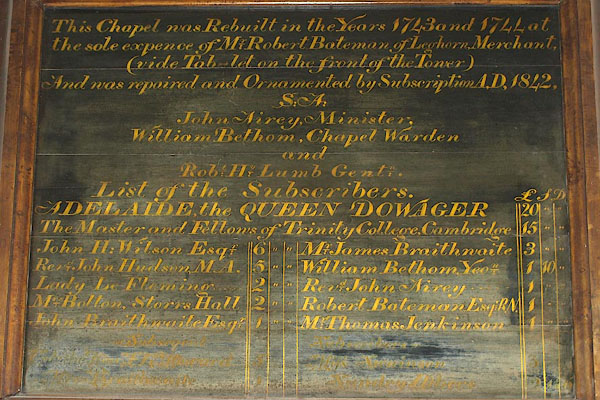 This Chapel was Rebuilt in the Years 1743 and 1744 at
the sole expence, of Mr. Robert Bateman, of Leghorn, Merchant,
(vide Tab-let on the front of the Tower)
And was repaired and Ornamented by Subscription A,D, 1842,
John Airey, Minister,
William Bethom, Chapel Warden
and
Robt. Hy. Lumb Gentn.
List of the Subscribers.
£ S D
ADELAIDE, the QUEEN DOWAGER 20 " "
The Master and Fellows of Trinity College, Cambridge 15 " "
John H: Wilson Esqr. 6 " " Mr. James Braithwaite 3 " "
Revd. John Hudson, M.A. 5 " " William Bethom, Yeon. 1 10 "
Lady Le Fleming 2 " " Revd. John Airey 1 " "
Mr. Bolton, Storrs Hall 2 " " Robert Bateman Esqr. R.N. 1 " "
John Braithwaite Esqr. 1 " " Mr. Thomas Jenkinson 1 " "